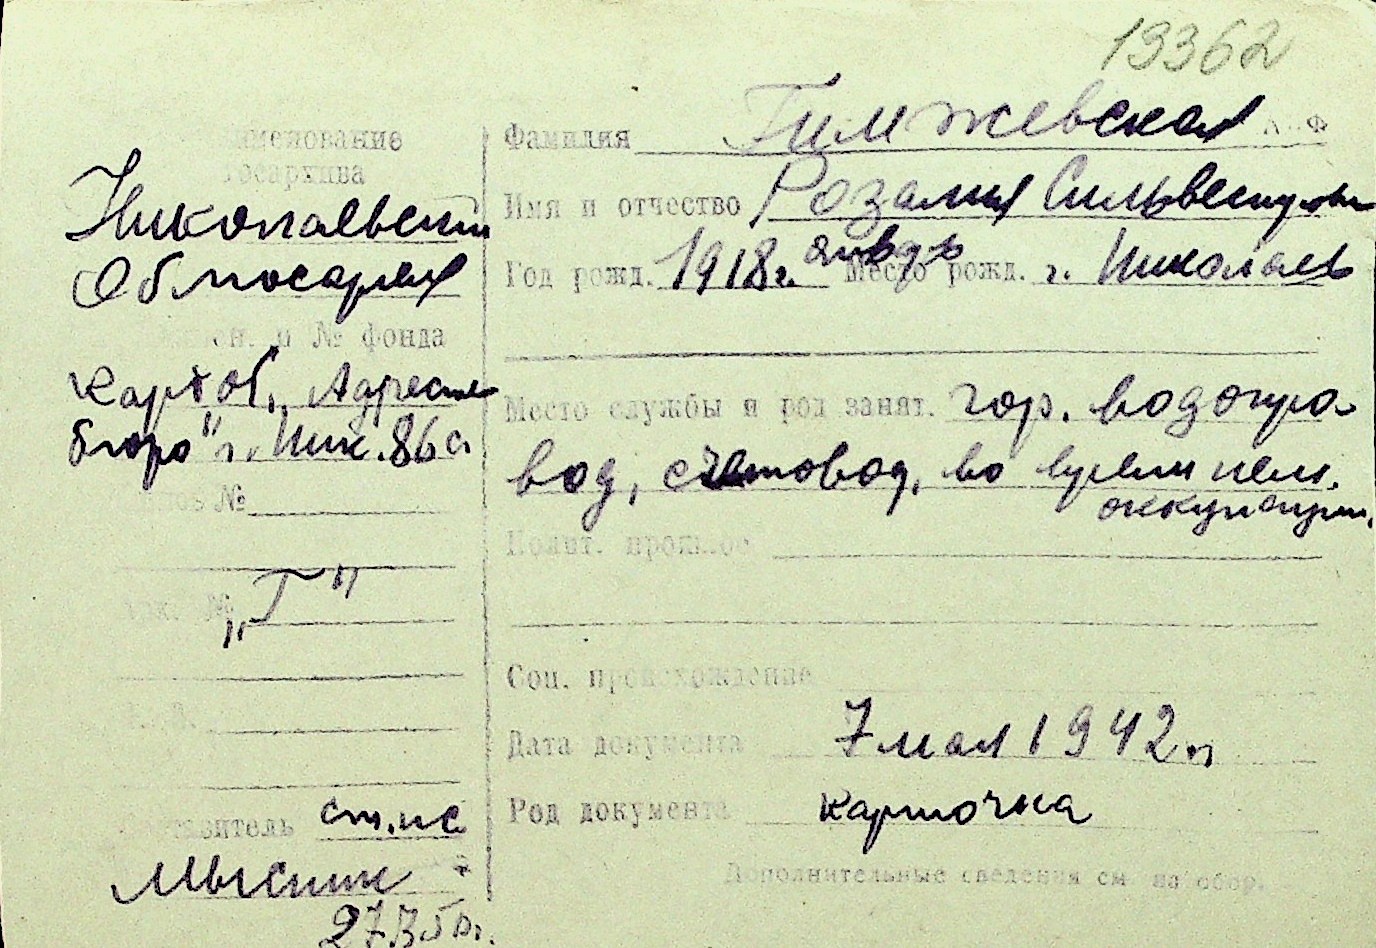 19362
Наименование
Госархива
Николаевский
Облгосархив
Наимен. и № фонда
Картоб. Адресное
бюро" г. Ник. 86 а
№
„Г"
ст. ис
Мысник
27.3.50г.
Фамилия Гимжевская
Имя и отчество Розалия Сильвестровна
Год рожд. 1918г. январь Место рожд. г. Николаев
Место службы и род занят. гор. водопро-
вод, счетовод, во время нем.
оккупации.
Полит. прошлое
Соц. происхождение
Дата документа 7 мая 1942 г
Род документа карточка
Дополнительные сведения см на обор.